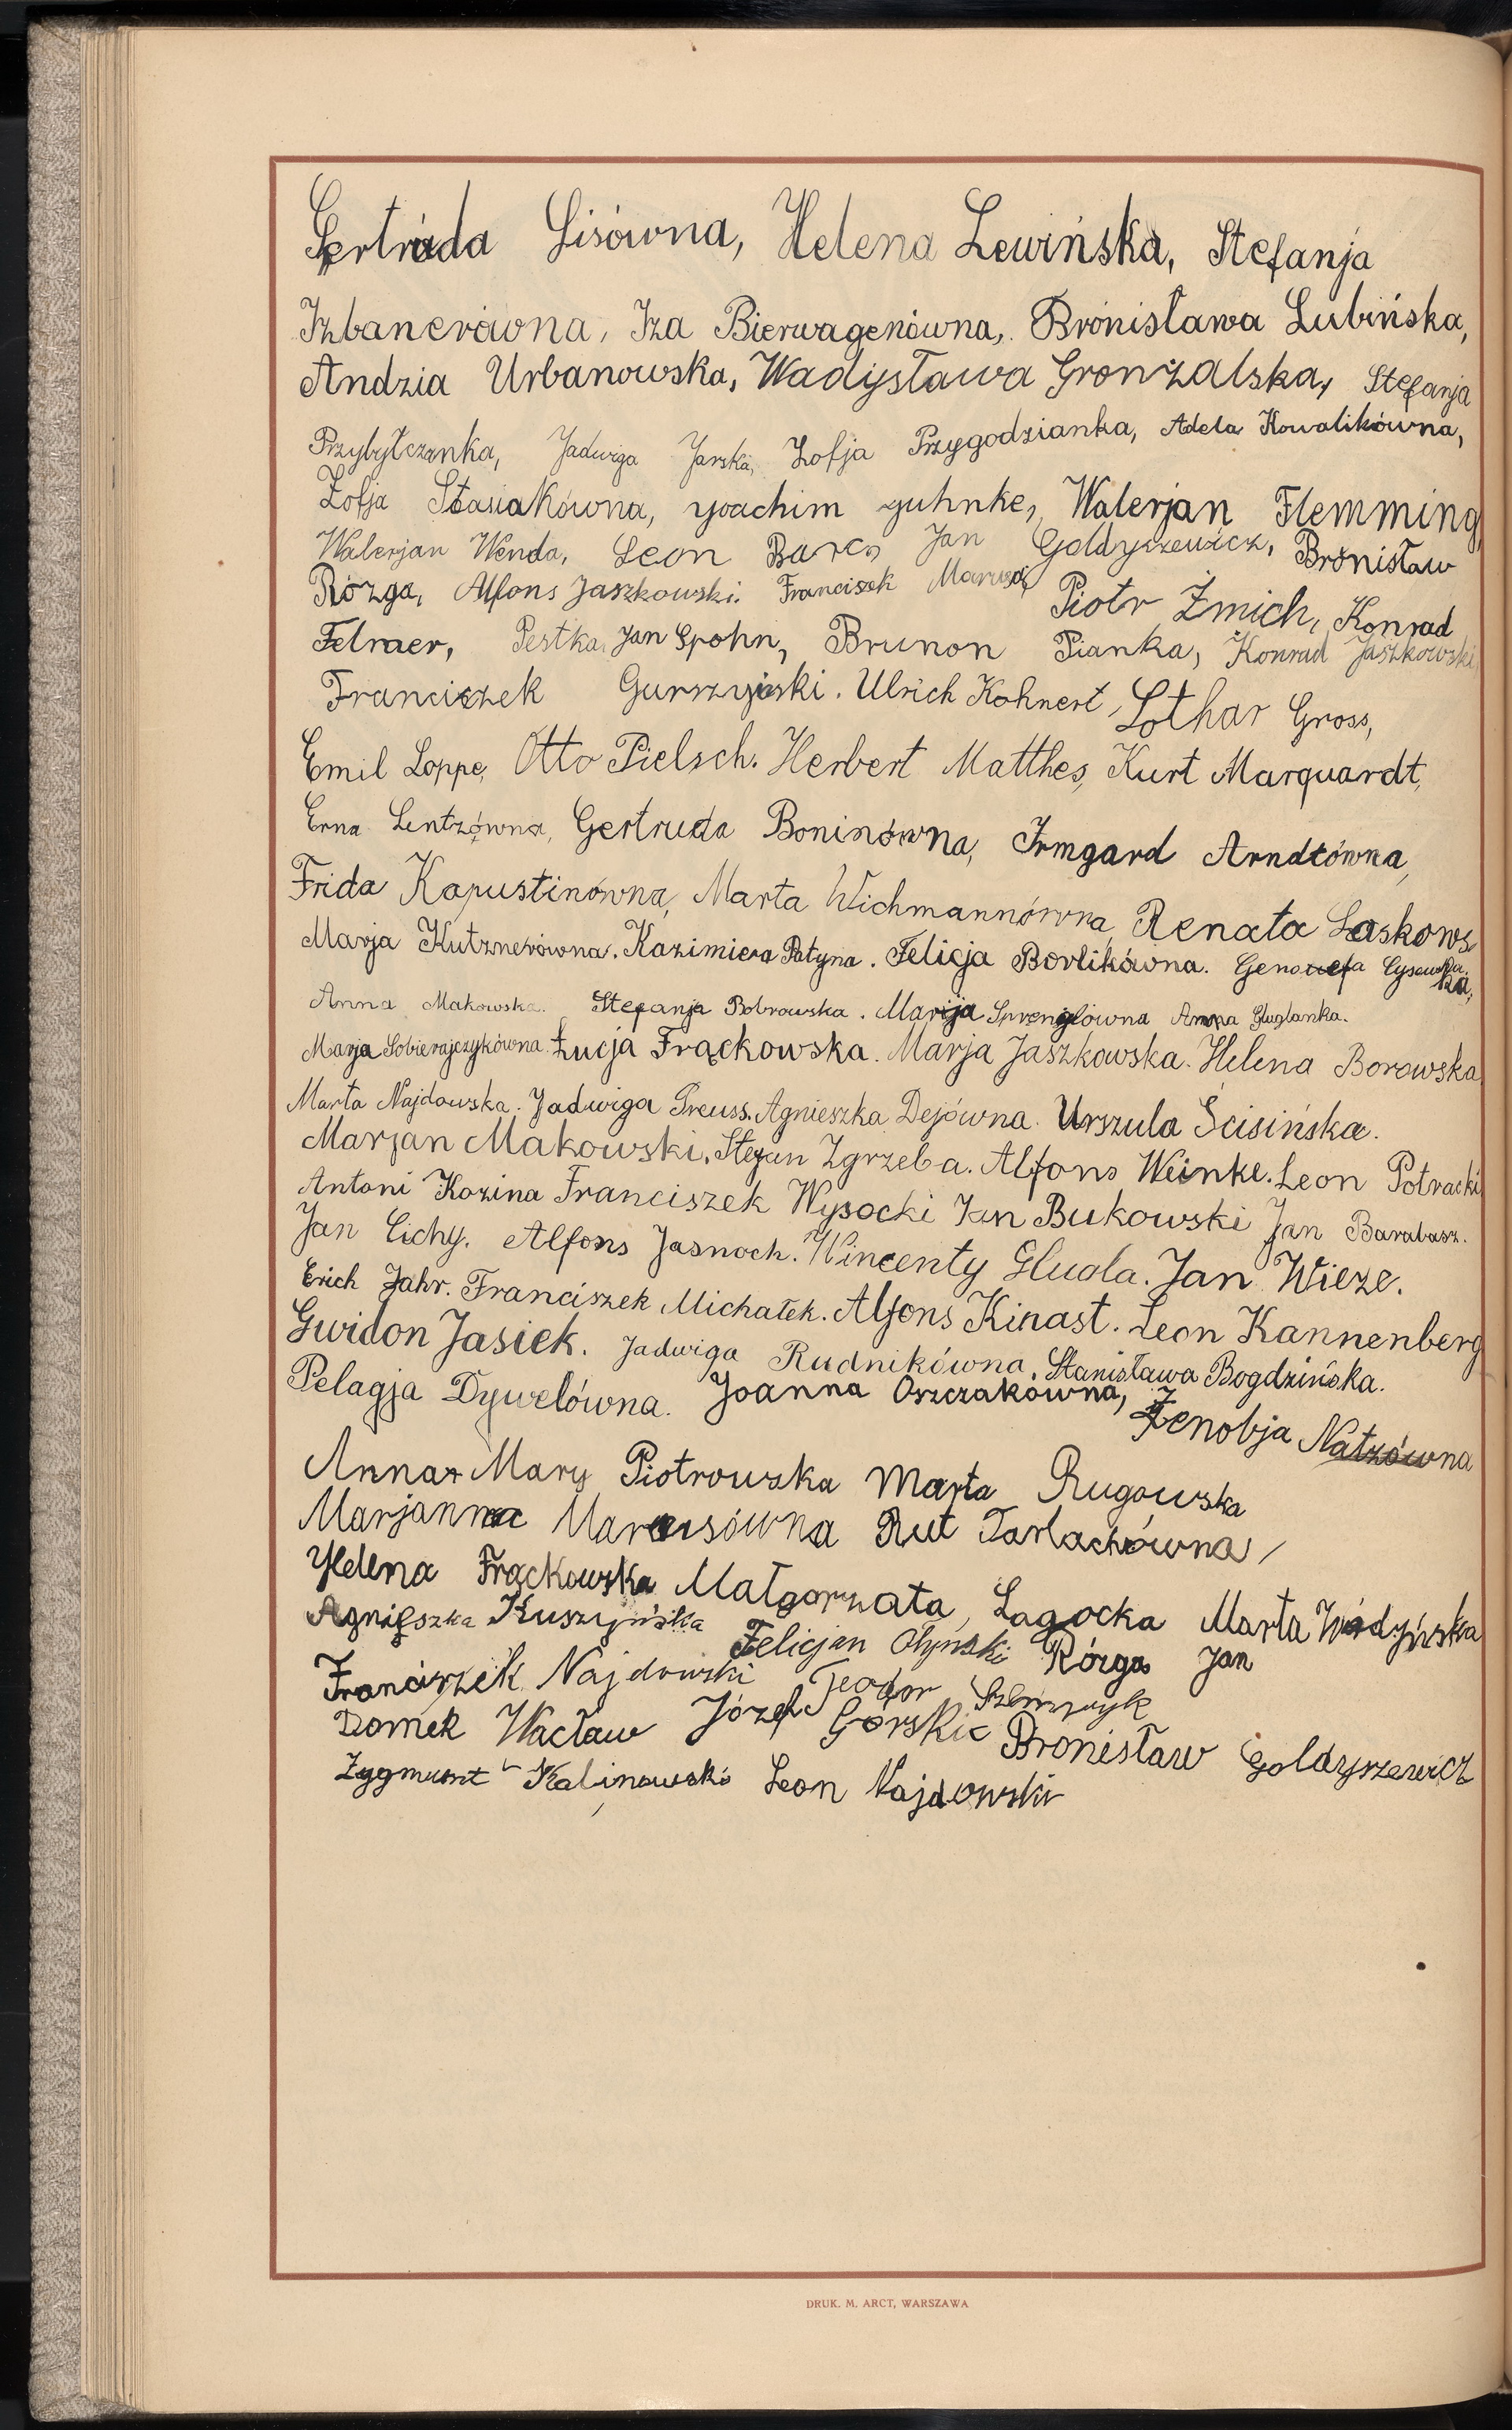 Gertruda Lisówna, Helena Lewińska, Stefanja
Izbanerówna, Iza Bierwagenówna, Bronisława Lubińska,
Andzia Urbanowska, Wadysława Gronzalska, Stefanja
Przybyłczanka, Jadwiga Jarska, Zofja Przygodzianka, Adela Kowalikówna,
Zofja Stasiakówna, Joachim Guhnke, Walerjan Flemming,
Walerjan Wenda, Leon Barcz Jan Goldyszewicz, Bronisław
Rózga, Alfons Jaszkowski. Franciszek Piotr Żmich, Konrad
Felmer, Pestka, Jan Spohn, Brunon Pianka, Konrad Jaszkowski,
Franciszek Gurszyński. Ulrich Kohnert, Lothar Gross,
Emil Loppe, Otto Pielsch. Herbert Matthes, Kurt Marquardt,
Erna Lentzówna, Gertruda Boninówna, Irmgard Arndtówna,
Frida Kapustinówna, Marta Wichmannówna, Renata Laskows
Marja Kutznerówna. Kazimiera Patyna. Felicja Borlikówna. Genowefa Cysewska. ka,
Anna Makowska. Stefanja Bobrowska. Marija Sprenglówna Anna Gluglanka.
Marja Sobierajczykówna. Łucja Frąckowska. Marja Jaszkowska. Helena Borowska
Marta Najdowska. Jadwiga Preuss. Agnieszka Dejówna. Urszula Ścisińska.
Marjan Makowski. Stefan Zgrzeba. Alfons Weinke. Leon Potracki
Antoni Kozina Franciszek Wysocki Jan Bukowski Jan Barabasz.
Jan Cichy. Alfons Jasnoch. Wincenty Gluala. Jan Wieze.
Erich Jahr. Franciszek Michałek. Alfons Kinast. Leon Kannenberg
Gwidon Jasiek. Jadwiga Rudnikówna. Stanisława Bogdzińska.
Pelagja Dywelówna. Joanna Oszczakówna, Zenobja Natzówna
Anna Mary Piotrowska Marta Rugowska
Marjanna Marcusówna Rut Tarlachówna,
Helena Frąckowska Małgorzata, Lagocka Marta Wądzyńska
Agnieszka Kuszyńska Felicjan Olynski Rózga Jan
Franciszek Najdowski Teodor Szlimczyk
Domek Wacław Józef Górski Bronisław Goldyszewicz
Zygmunt Kalinowski Leon Najdowski
DRUK. M. ARCT, WARSZAWA